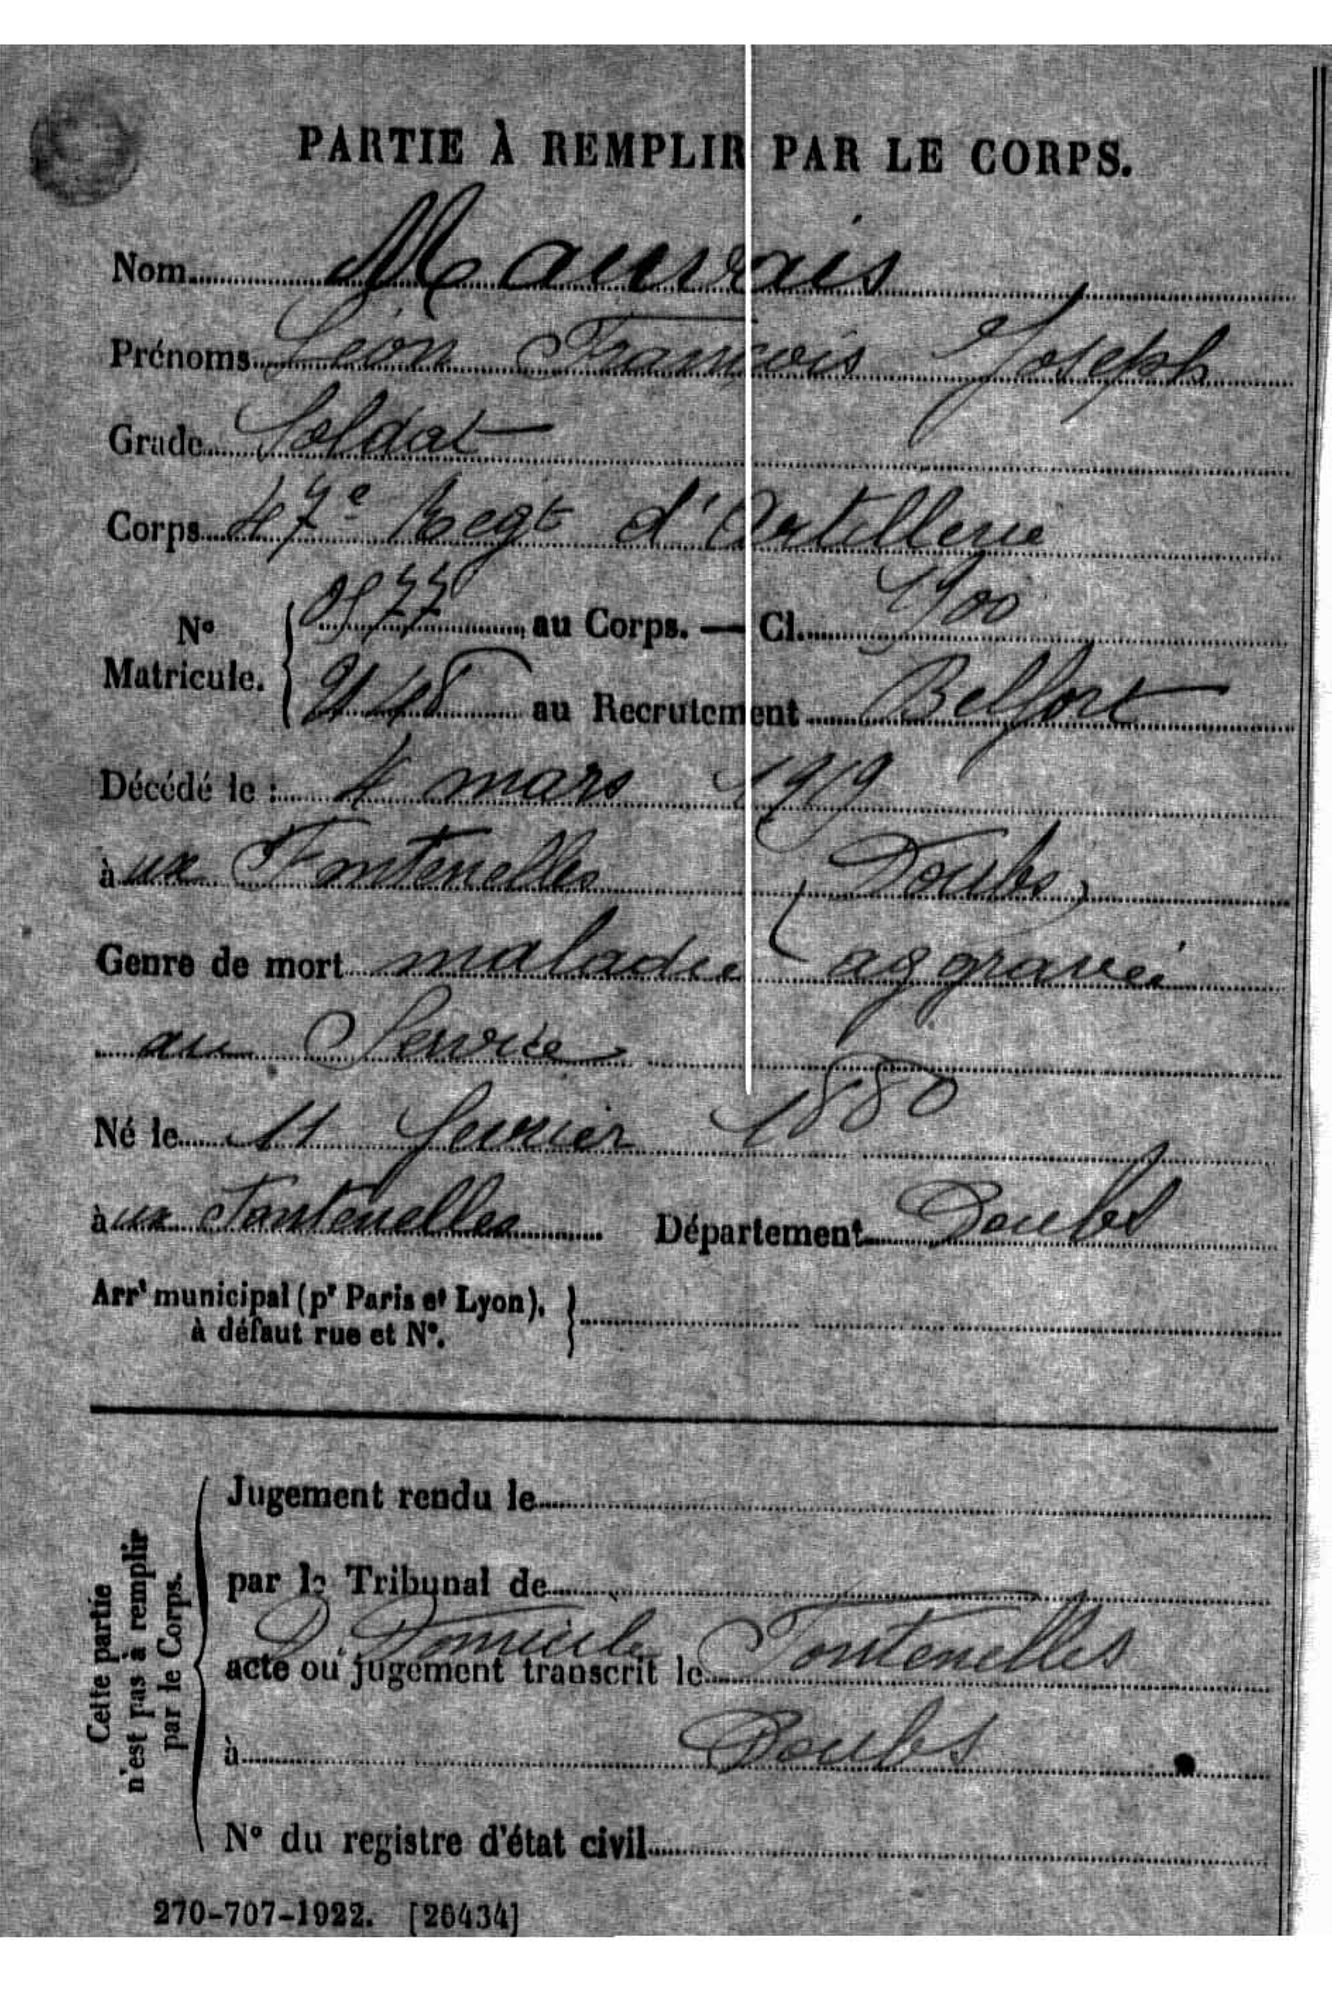 PARTIE À REMPLIR PAR LE CORPS.
Nom Mauvais
Prénoms Léon François Joseph
Grade Soldat
Corps 47e Regt d'Artillerie
N° Matricule. { 0977 au Corps. — Cl. 1900
2148 au Recrutement Belfort
Décédé le : 4 mars 1919
àux Fontenelles (Doubs)
Genre de mort maladie aggravée
au Service
Né le 11 fevrier 1880
àux Fontenelles Département Doubs
Arrt municipal (pr Paris et Lyon), }
à défaut rue et N°.
Cette partie
n'est pas à remplir
par le Corps.
Jugement rendu le
par le Tribunal de
D. Domicile Fontenelles
acte ou jugement transcrit le
à Doubs
N° du registre d'état civil
270-707-1922. [26434]